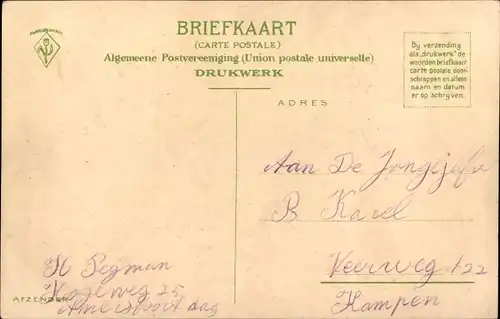 FABRIEKSMERK
BRIEFKAART
(CARTE POSTALE)
Algemeene Postvereeniging (Union postale universelle)
DRUKWERK
Bij verzending
als „drukwerk” de
woorden briefkaart
carte postale door-
schrappen en alleen
naam en datum
er op schrijven.
ADRES
Aan De Jongejufr
B Karel
Veerweg 122
Kampen
Segman
Hogeweg 25
AFZENDER
Amersvoort